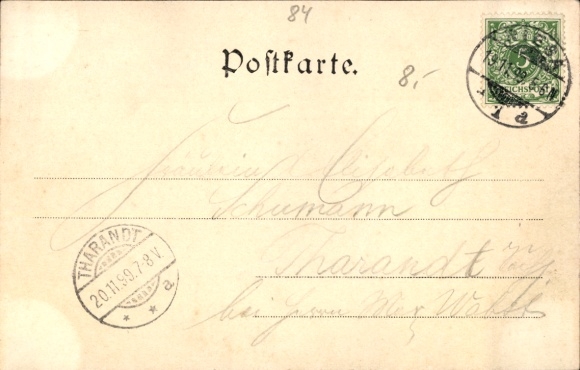 84
Postkarte.
8,-
5
REICHSPOST
Fräulein Elisabeth
Schumann
Tharandt
bei Herrn
THARANDT
20.11.99.7-8 V.
* * a